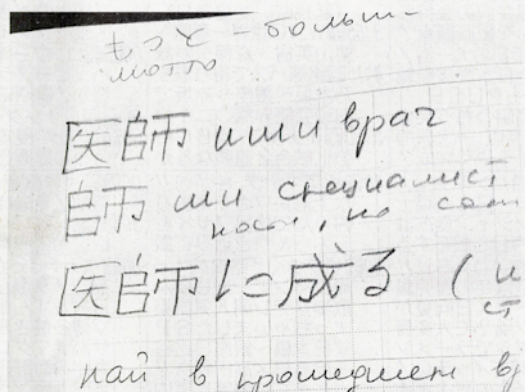 もっと - больш
мотто
医師 иши врач
師 ши специалист
医師に成る (и
ст
най в прошедшем вр